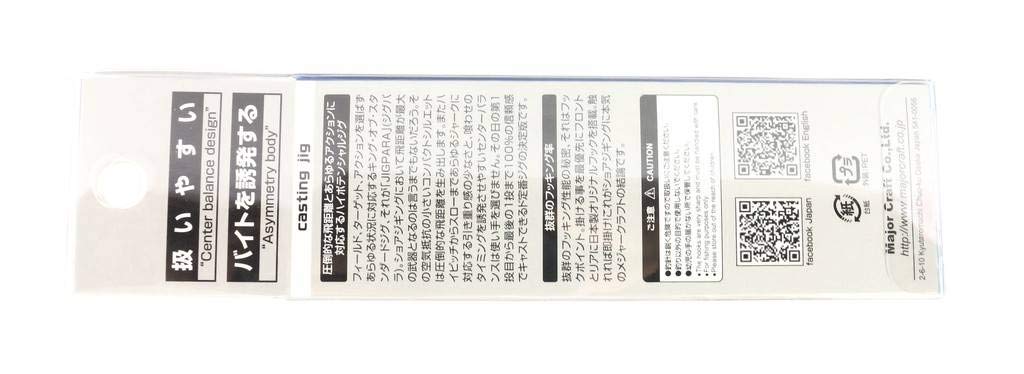 扱いやすい
"Center balance design"
バイトを誘発する
"Asymmetry body"
casting jig
圧倒的な飛距離とあらゆるアクションに
対応するハイポテンシャルジグ
フィールド、ターゲット、アクションを選ばず
あらゆる状況に対応するキング・オブ・スタ
ンダードジグ、それが「JIGPARA」(ジグパ
ラ)。ショアジギングにおいて飛距離が最大
の武器となるのは言うまでもないだろう。そ
の空気抵抗の小さいコンパクトシルエット
は圧倒的な飛距離を生み出します。またハ
イピッチからスローまであらゆるジャークに
対応する引き重り感の少なさと、喰わせの
タイミングを誘発させやすいセンターバラ
ンスは使い手を選びません。その日の第1
投目から最後の1投まで100%の信頼感
でキャストできるド定番ジグの決定版です。
抜群のフッキング率
抜群のフッキング性能の秘密、それはフッ
クポイント。掛ける事を最優先にフロント
とリアに日本製オリジナルフックを搭載。触
れれば即掛け!これがショアジギングに本気
のメジャークラフトの結論です。
ご注意 CAUTION
●釣針は鋭く危険ですので取扱いにご注意ください。
●釣り以外の目的で使用しないでください。
●幼児の手の届かない所で保管してください。
•The hooks are very sharp and must be handled with care.
•For fishing purposes only.
•Please store out of the reach of children.
facebook Japan
facebook English
紙
台紙
プラ
外袋:PET
Major Craft Co.,Ltd.
http://www.majorcraft.co.jp